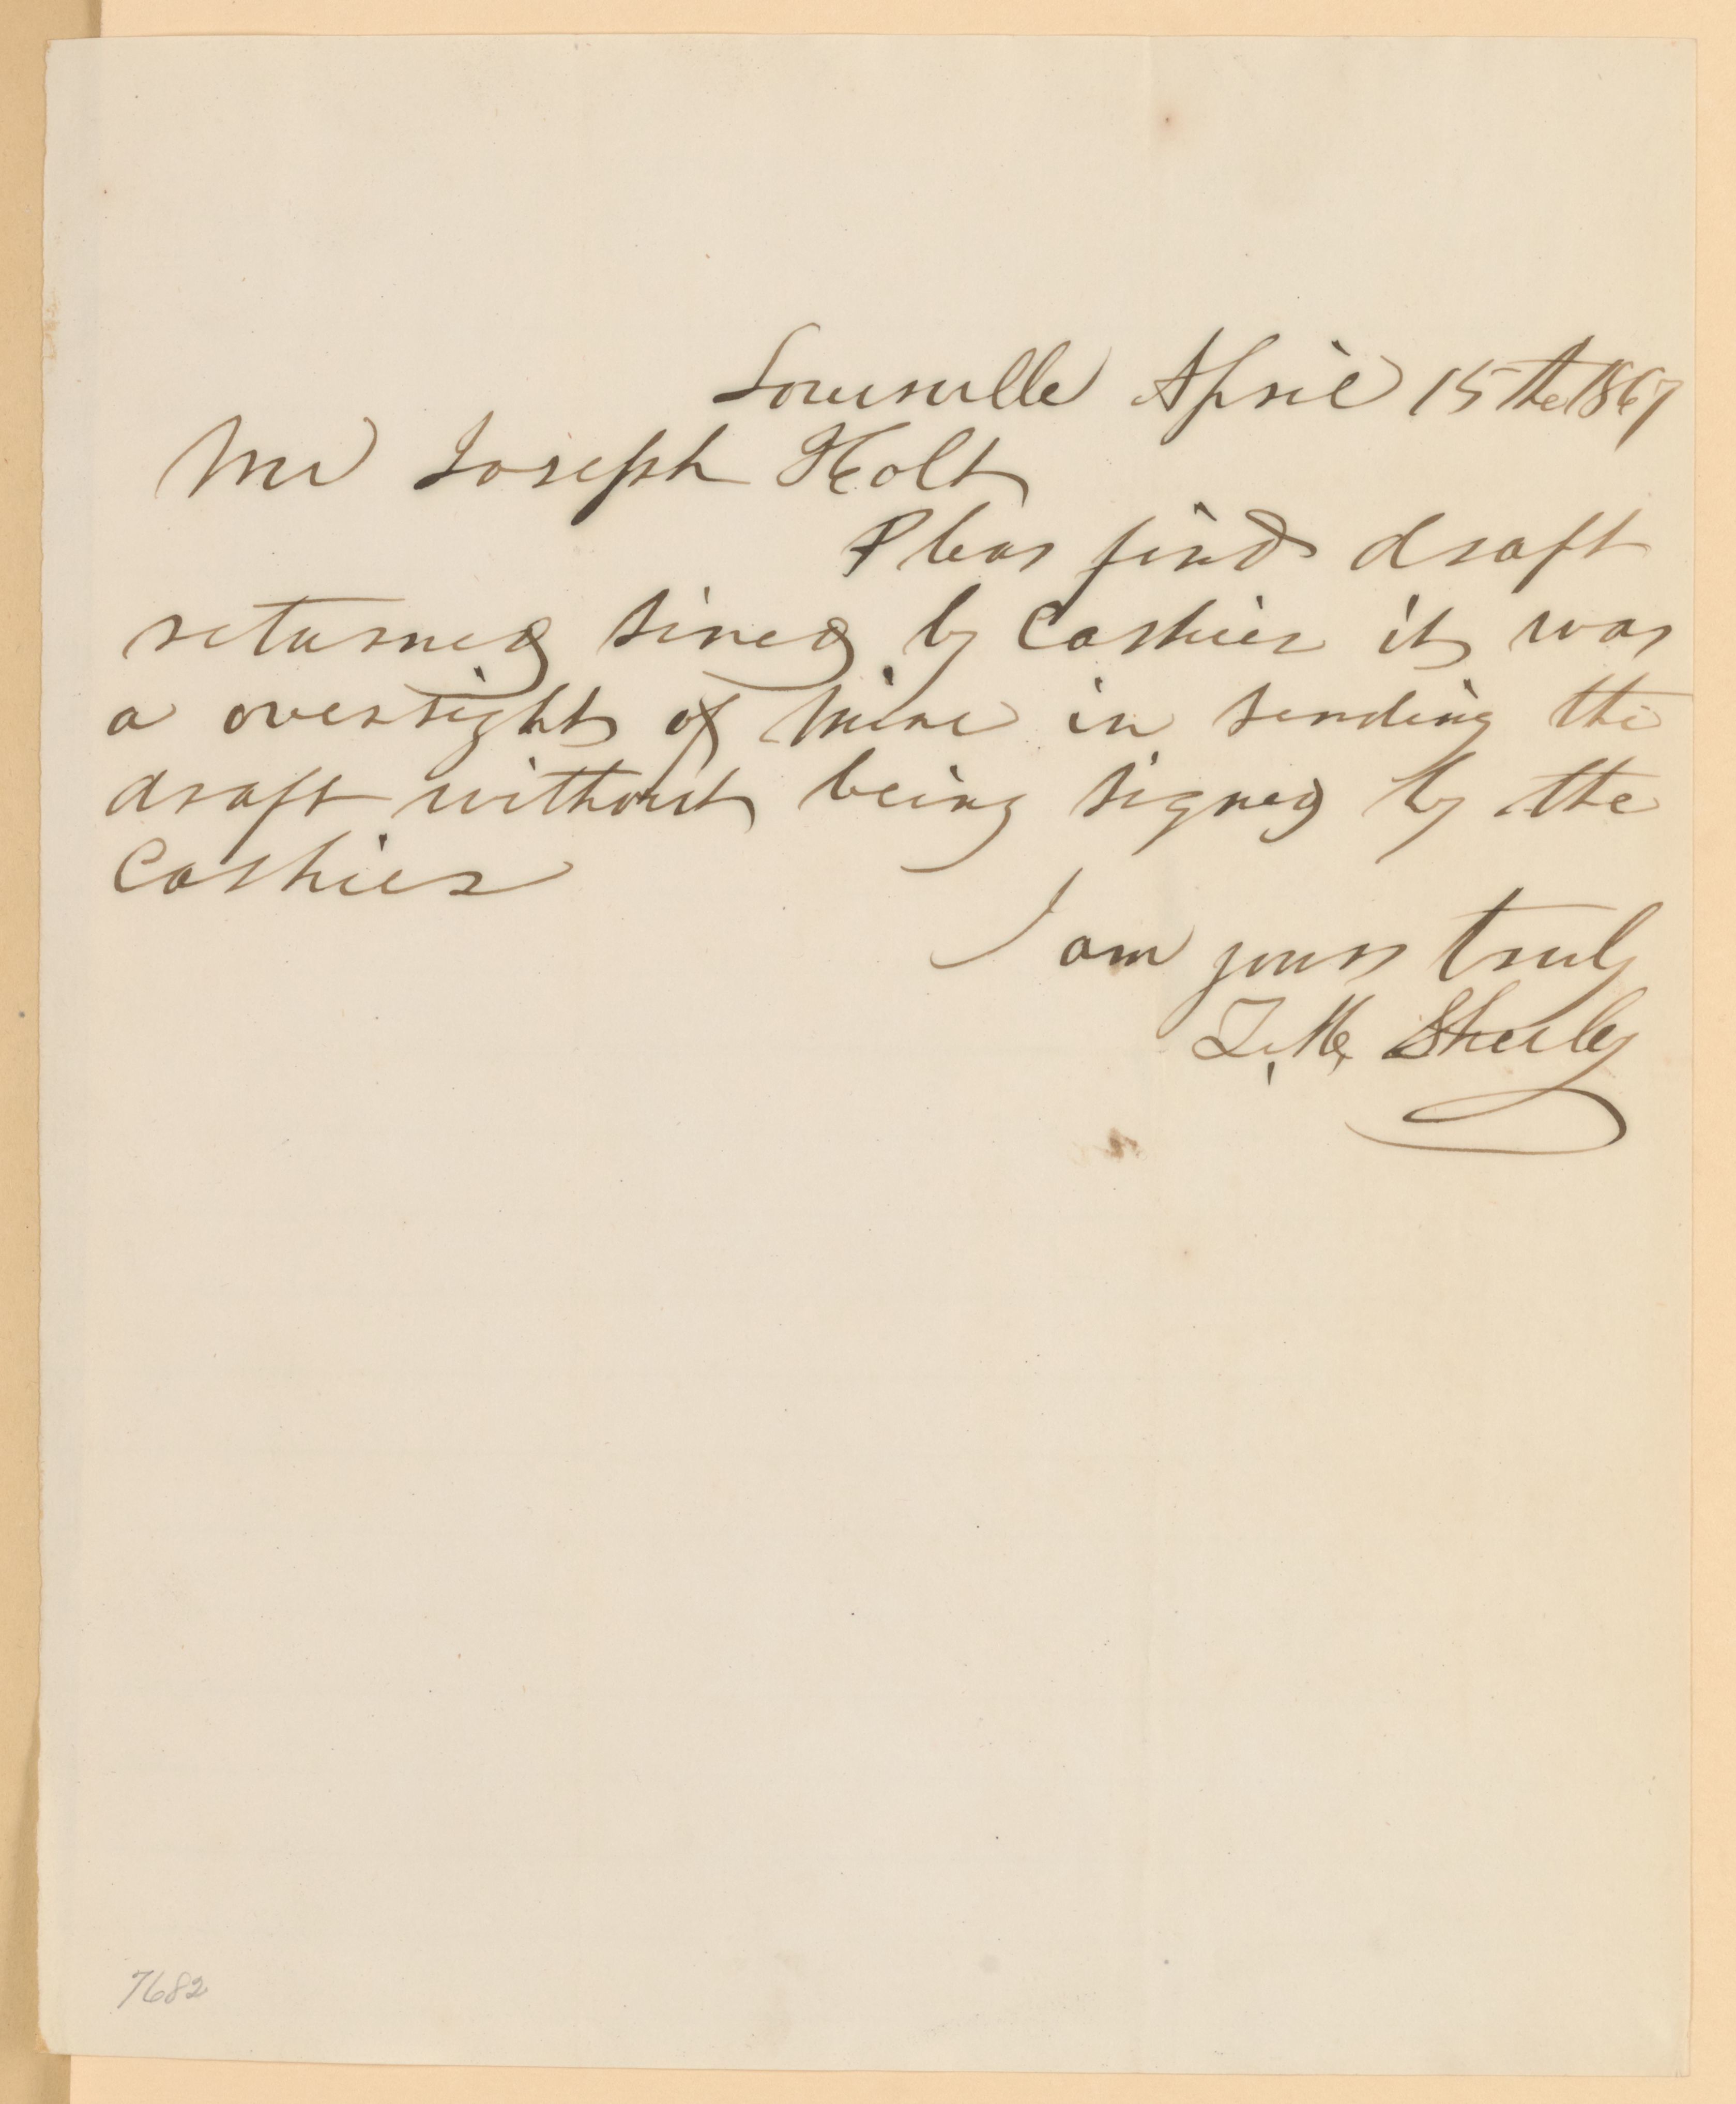 Louisville April 15the 1867
Mr Joseph Holt
Pleas find draft
returned sined by Cashier it was
a oversight of mine in sending the
draft without being signed by the
Cashier
I am yours truly
Z. M. Sherley
7682